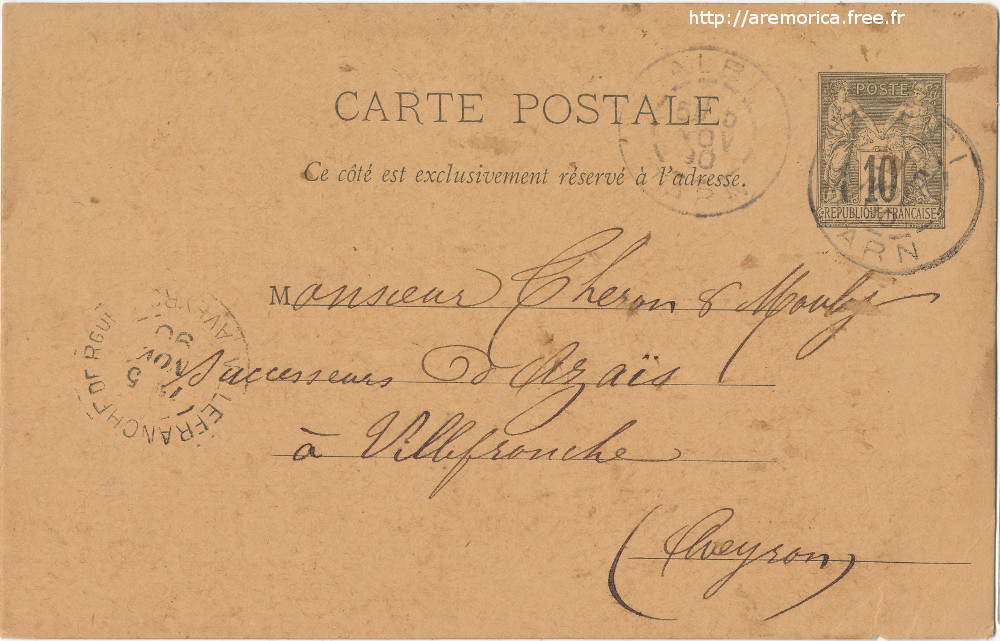 http://aremorica.free.fr
CARTE POSTALE
Ce côté est exclusivement réservé à l'adresse.
ALBI
5
NOV
90
TARN
POSTE
10
REPUBLIQUE FRANÇAISE
ARN
Monsieur Theron & Mouly
Successeurs d'Azaïs
à Villefranche
(Aveyron)
LEFRANCHE DE RGUE
5
NOV
90
AVEYR